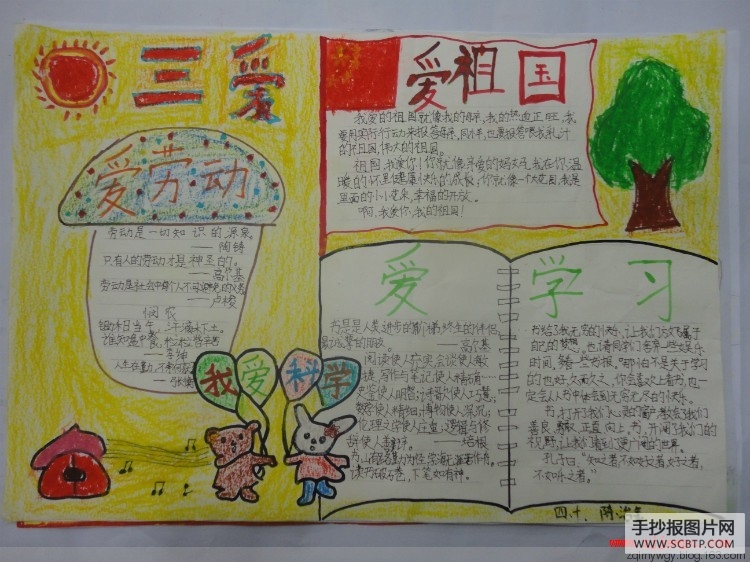 三爱
爱劳动
劳动是一切知识的源泉。
——陶铸
只有人的劳动才是神圣的。
——高尔基
——卢梭
悯农
锄禾日当午，汗滴禾下土。
谁知盘中餐，粒粒皆辛苦
——李绅
人生在勤，不
——张衡
我爱科学
爱祖国
我爱的祖国就像我的母亲，我的热血正旺，我
要用实际行动来报答母亲，同样，也要报答喂我乳汁
的祖国，伟大的祖国。
祖国，我爱你！你就像亲爱的妈妈，我在你温
暖的怀里健康快乐的成长；你就像一个大花园，我是
里面的小小花朵，幸福的开放。
啊，我爱你，我的祖国！
爱学习
书是人类进步的阶梯，终生的伴侣，
最诚挚的朋友。——高尔基
阅读使人充实，会谈使人敏
捷，写作与笔记使人精确
史鉴使人明智；诗歌使人巧慧；
数学使人精细；博物使人深沉；
伦理之学使人庄重；逻辑与修
辞使人善辩。——培根
读书破万卷，下笔如有神。
书给了我无穷的快乐，让我们为了属于
自己的梦想，
时间，
的也好，久而久之，你会喜欢上看书，也一
定会从书中体会到无穷无尽的快乐。
书，打开我们心灵的窗户，教会我们
善良、
视野，让我们看到了更广阔的世界。
孔子曰：“知之者不如好之者，好之者，
不如乐之者。”
四.十、
手抄报图片网
WWW.SCBTP.COM
zqlmywgy.blog.163.com